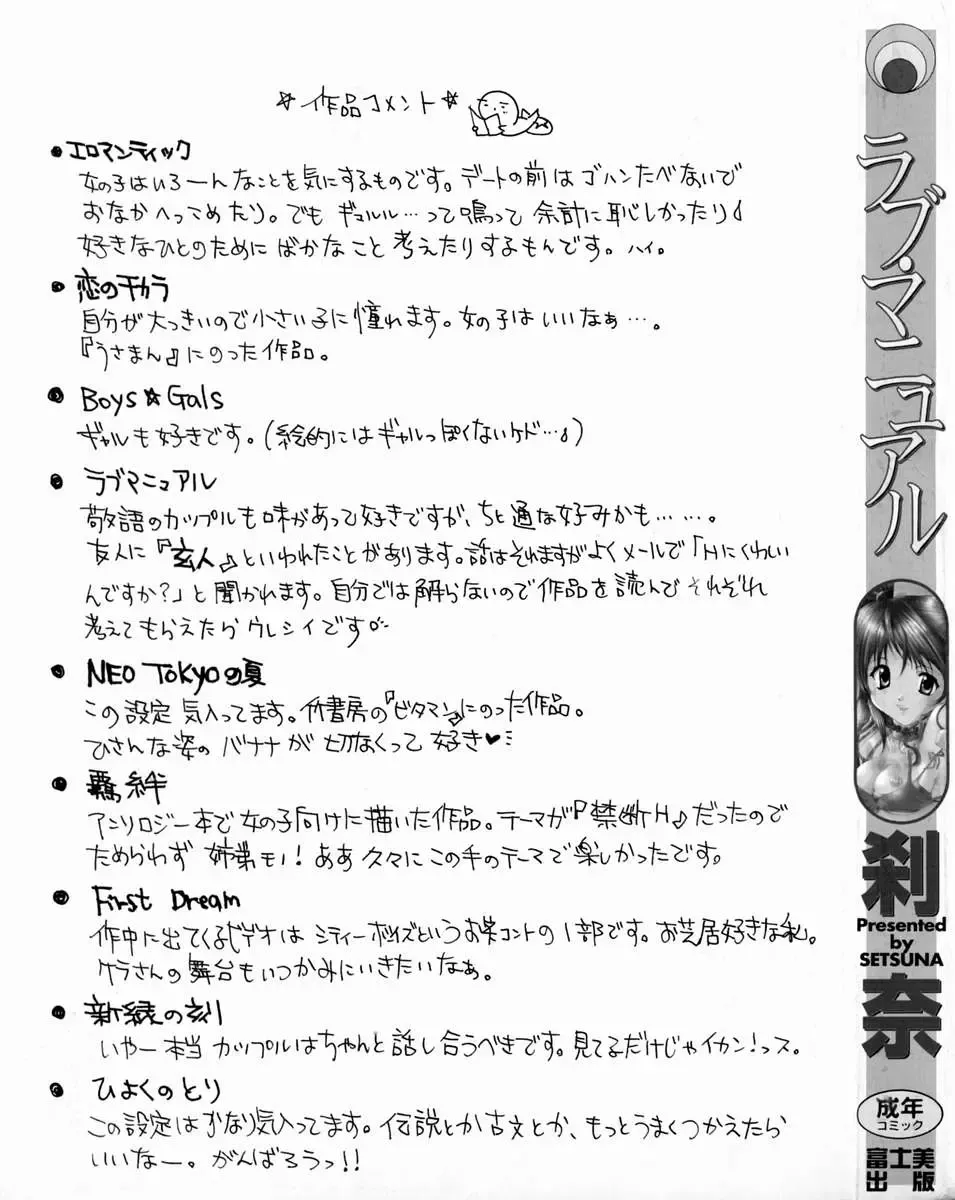 ☆作品コメント☆
●エロマンティック
女の子はいろーんなことを気にするものです。デートの前はゴハンたべないで
おなかへっこめたり。でもギュルル…って鳴って余計に恥しかったり♪
好きなひとのためにばかなこと考えたりするもんです。ハイ。
●恋のチカラ
自分が大っきいので小さい子に憧れます。女の子はいいなぁ…。
『うさまん』にのった作品。
●Boys☆Gals
ギャルも好きです。(絵的にはギャルっぽくないケド…♪)
●ラブマニュアル
敬語のカップルも味があって好きですが、ちと通な好みかも……。
友人に『玄人』といわれたことがあります。話はそれますがよくメールで「Hにくわしい
んですか?」と聞かれます。自分では解らないので作品を読んでそれぞれ
考えてもらえたらウレシイです
●NEO TOKYOの夏
この設定気入ってます。竹書房の『ビタマン』にのった作品。
ひさんな姿のバナナが切なくって好き♥
●羈絆
アンソロジー本で女の子向けに描いた作品。テーマが『禁断H』だったので
ためらわず姉弟モノ!ああ久々にこの手のテーマで楽しかったです。
●First Dream
作中に出てくるビデオはシティーボイズというお笑コントの1部です。お芝居好きな私。
ケラさんの舞台もいつかみにいきたいなぁ。
●新緑の刻
いやー本当カップルはちゃんと話し合うべきです。見てるだけじゃイカン!っス。
●ひよくのとり
この設定はかなり気入ってます。伝説とか古文とか、もっとうまくつかえたら
いいなー。がんばろうっ!!
ラブ・マニュアル
刹奈
Presented
by
SETSUNA
成年
コミック
富士美
出版